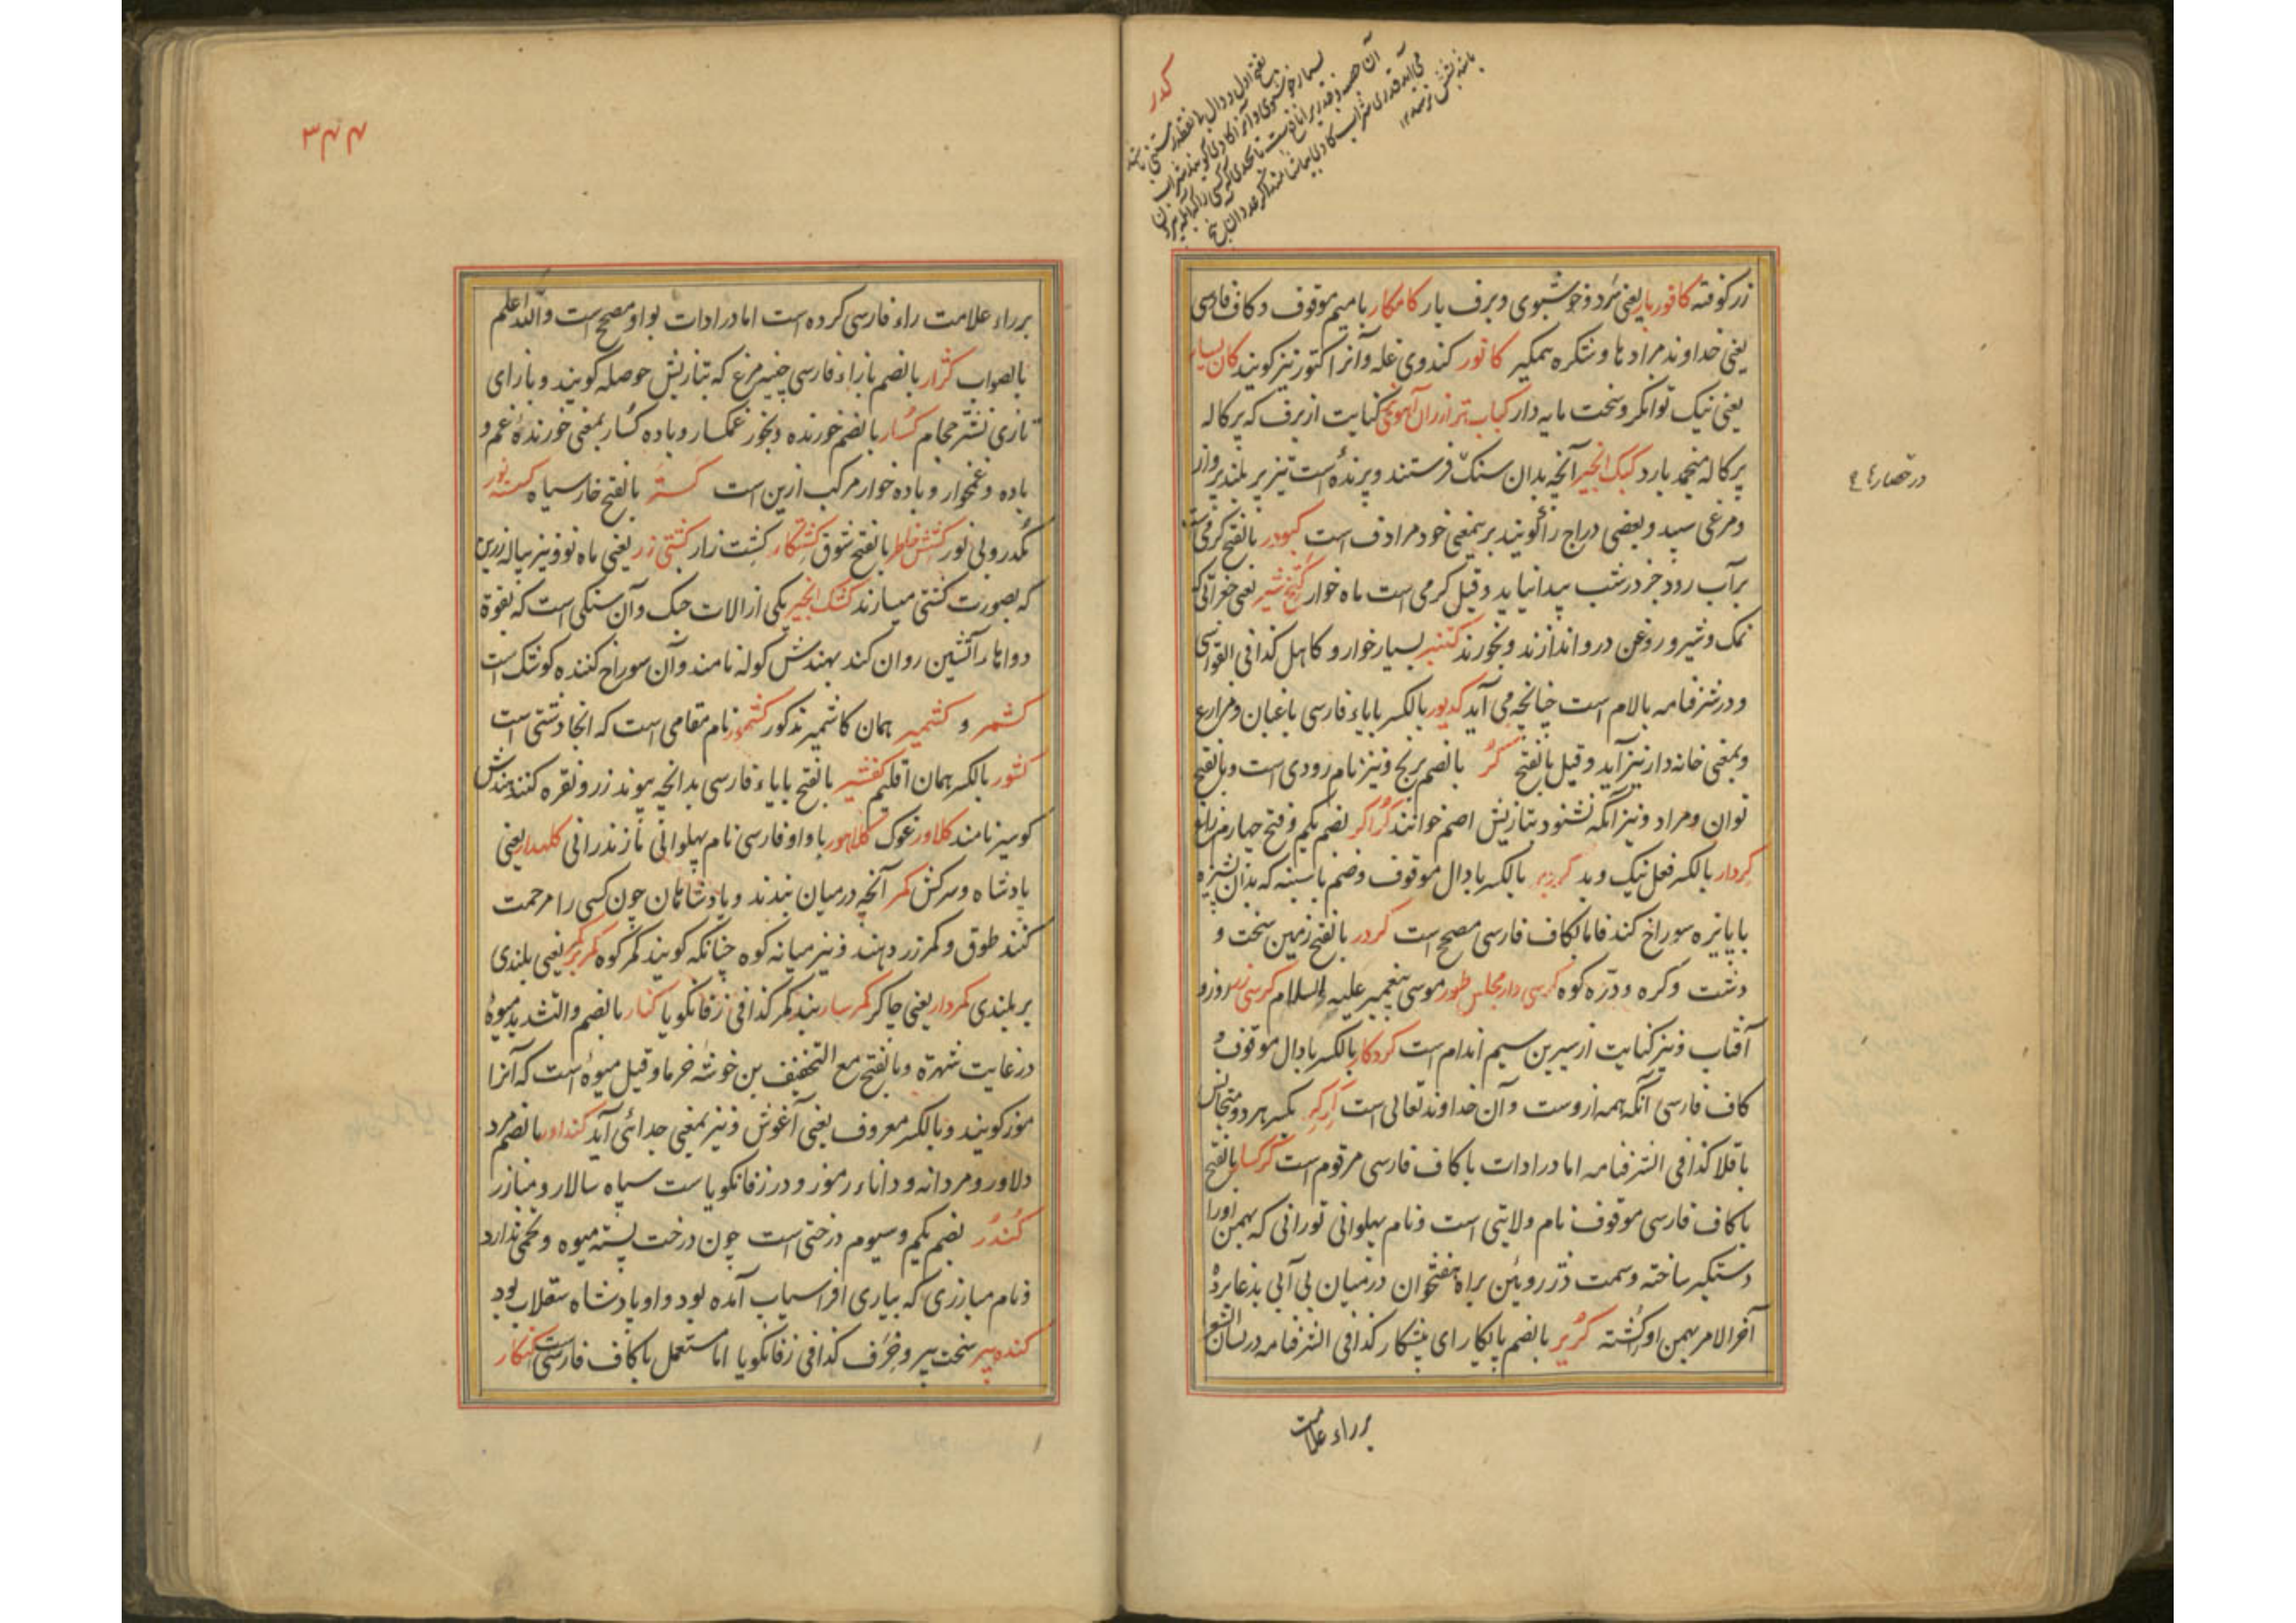 کدر
بفتح اول و دال
زر کوفته کافوربار یعنی سرد و خوشبوی و برف بار کامکار با میم موقوف و کاف فارسی
یعنی خداوند مرادها و شکره همکیر کانور کندوی غله و آنرا کنور نیز کویند کان یسار
یعنی نیک توانکر و سخت مایه دار کباب تر از ران آهو کنایت از برف که پرکاله
پرکاله منجمد بارد کبک انجیر آنچه بدان سنک فرستند و پرنده است تیز پر بلند پرواز
و مرغی سپید و بعضی دراج را کویند برین معنی خود مرادف است کبودر بالفتح کرمی است
بر آب رود جز در شب پیدا نیاید و قیل کرمی است ماه خوار شیر یعنی جغراتی که
نمک و شیر و روغن در و اندازند و بخورند کنبر بسیار خوار و کاهل کذا فی القواس
و در شرفنامه بالام است چنانچه می آید کدیور بالکسر با یاء فارسی باغبان و مزارع
و بمعنی خانه دار نیز آید و قیل بالفتح کر بالضم برنج و نیز نام رودی است و بالفتح
توان و مراد و نیز آنکه نشنود بتازیش اصم خوانند کراکر بضم یکم و فتح چهارم زاغ
کردار بالکسر فعل نیک و بد بالکسر با دال موقوف و ضم با سینه که بدان نشزه
با پایزه سوراخ کند فاما با کاف فارسی مصحح است کردر بالفتح زمین سخت و
دشت و کره و دره کوه کرسی دار مجلس طور موسی پیغمبر علیه السلام کرسی زر روز و
آفتاب و نیز کنایت از سیرین سیم اندام است کردکار بالکسر با دال موقوف و
کاف فارسی آنکه همه از وست و آن خداوند تعالی است کرکر بکسر هر دو متجانس
باقلا کذا فی الشرفنامه اما در ادات با کاف فارسی مرقوم است کرکسار بالفتح
با کاف فارسی موقوف نام ولایتی است و نام پهلوانی تورانی که بهمن او را
دستکیر ساخته و سمت دز روئین براه هفتخوان در میان بی آبی بد عابرده
آخر الامر بهمن او کشته کریر بالضم پایکار ای پیشکار کذا فی الشرفنامه در لسان الشعرا
بر راء علامت
در حصار
۳۴۴
بر راء علامت راء فارسی کرده است اما در ادات بواو مصحح است والله اعلم
بالصواب کژار بالضم بازاء فارسی چینه مرغ که بتازیش حوصله کویند و بازای
تازی نشتر حجام کسار بالضم خورنده و بخور غمکسار و باده کسار بمعنی خورنده غم و
باده و غمخوار و باده خوار مرکب ازین است کستر بالفتح خار سیاه کسته نور
مکدر و بی نور کشش خاطر بالفتح شوق کشتکار کشت زار کشتی زر یعنی ماه نو و نیز پیاله زرین
که بصورت کشتی میسازند کشک انجیر یکی از الات جنک و آن سنکی است که بقوة
دواها را آتشین روان کند بهندش کوله نامند و آن سوراخ کننده کوشک است
کشمر و کشمیر همان کاشمیر مذکور کشمور نام مقامی است که انجا دشتی است
کشور بالکسر همان اقلیم کفشیر بالفتح با یاء فارسی بدانچه پیوند زر و نقره کنند هندش
کوسیز نامند کلاور غوک کلاهور با واو فارسی نام پهلوانی مازندرانی کلهدار یعنی
پادشاه و سرکش کمر آنچه در میان بندند و پادشاهان چون کسی را مرحمت
کنند طوق و کمر زر دهند و نیز میانه کوه چنانکه کویند کمر کوه کمر بر کمر یعنی بلندی
بر بلندی کمردار یعنی چاکر کمرسار بند کمر کذا فی زفانکویا کنار بالضم و التشدید میوه
در غایت شهرة و بالفتح مع التخفیف بن خوشه خرما و قیل میوه است که آنرا
موز کویند و بالکسر معروف یعنی آغوش و نیز بمعنی جدائی آید کنداور بالضم مرد
دلاور و مردانه و داناء رموز و در زفانکویا ست سپاه سالار و مبارز
کندر بضم یکم و سیوم درختی است چون درخت پسته میوه و تخمی ندارد
و نام مبارزی که بیاری افراسیاب آمده بود و او پادشاه سقلاب بود
کنده پیر سخت پیر و خرف کذا فی زفانکویا اما مستعمل با کاف فارسی است کنکار